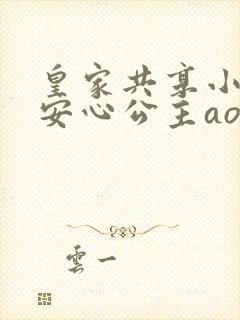 皇家共享小
安心公主ao
雲一